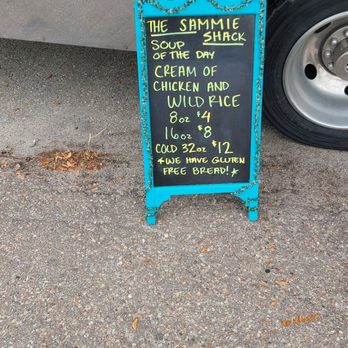 THE SAMMIE
SHACK
SOUP
OF THE DAY
CREAM OF
CHICKEN AND
WILD RICE
8oz $4
16oz $8
COLD 32oz $12
*WE HAVE GLUTEN
FREE BREAD!*